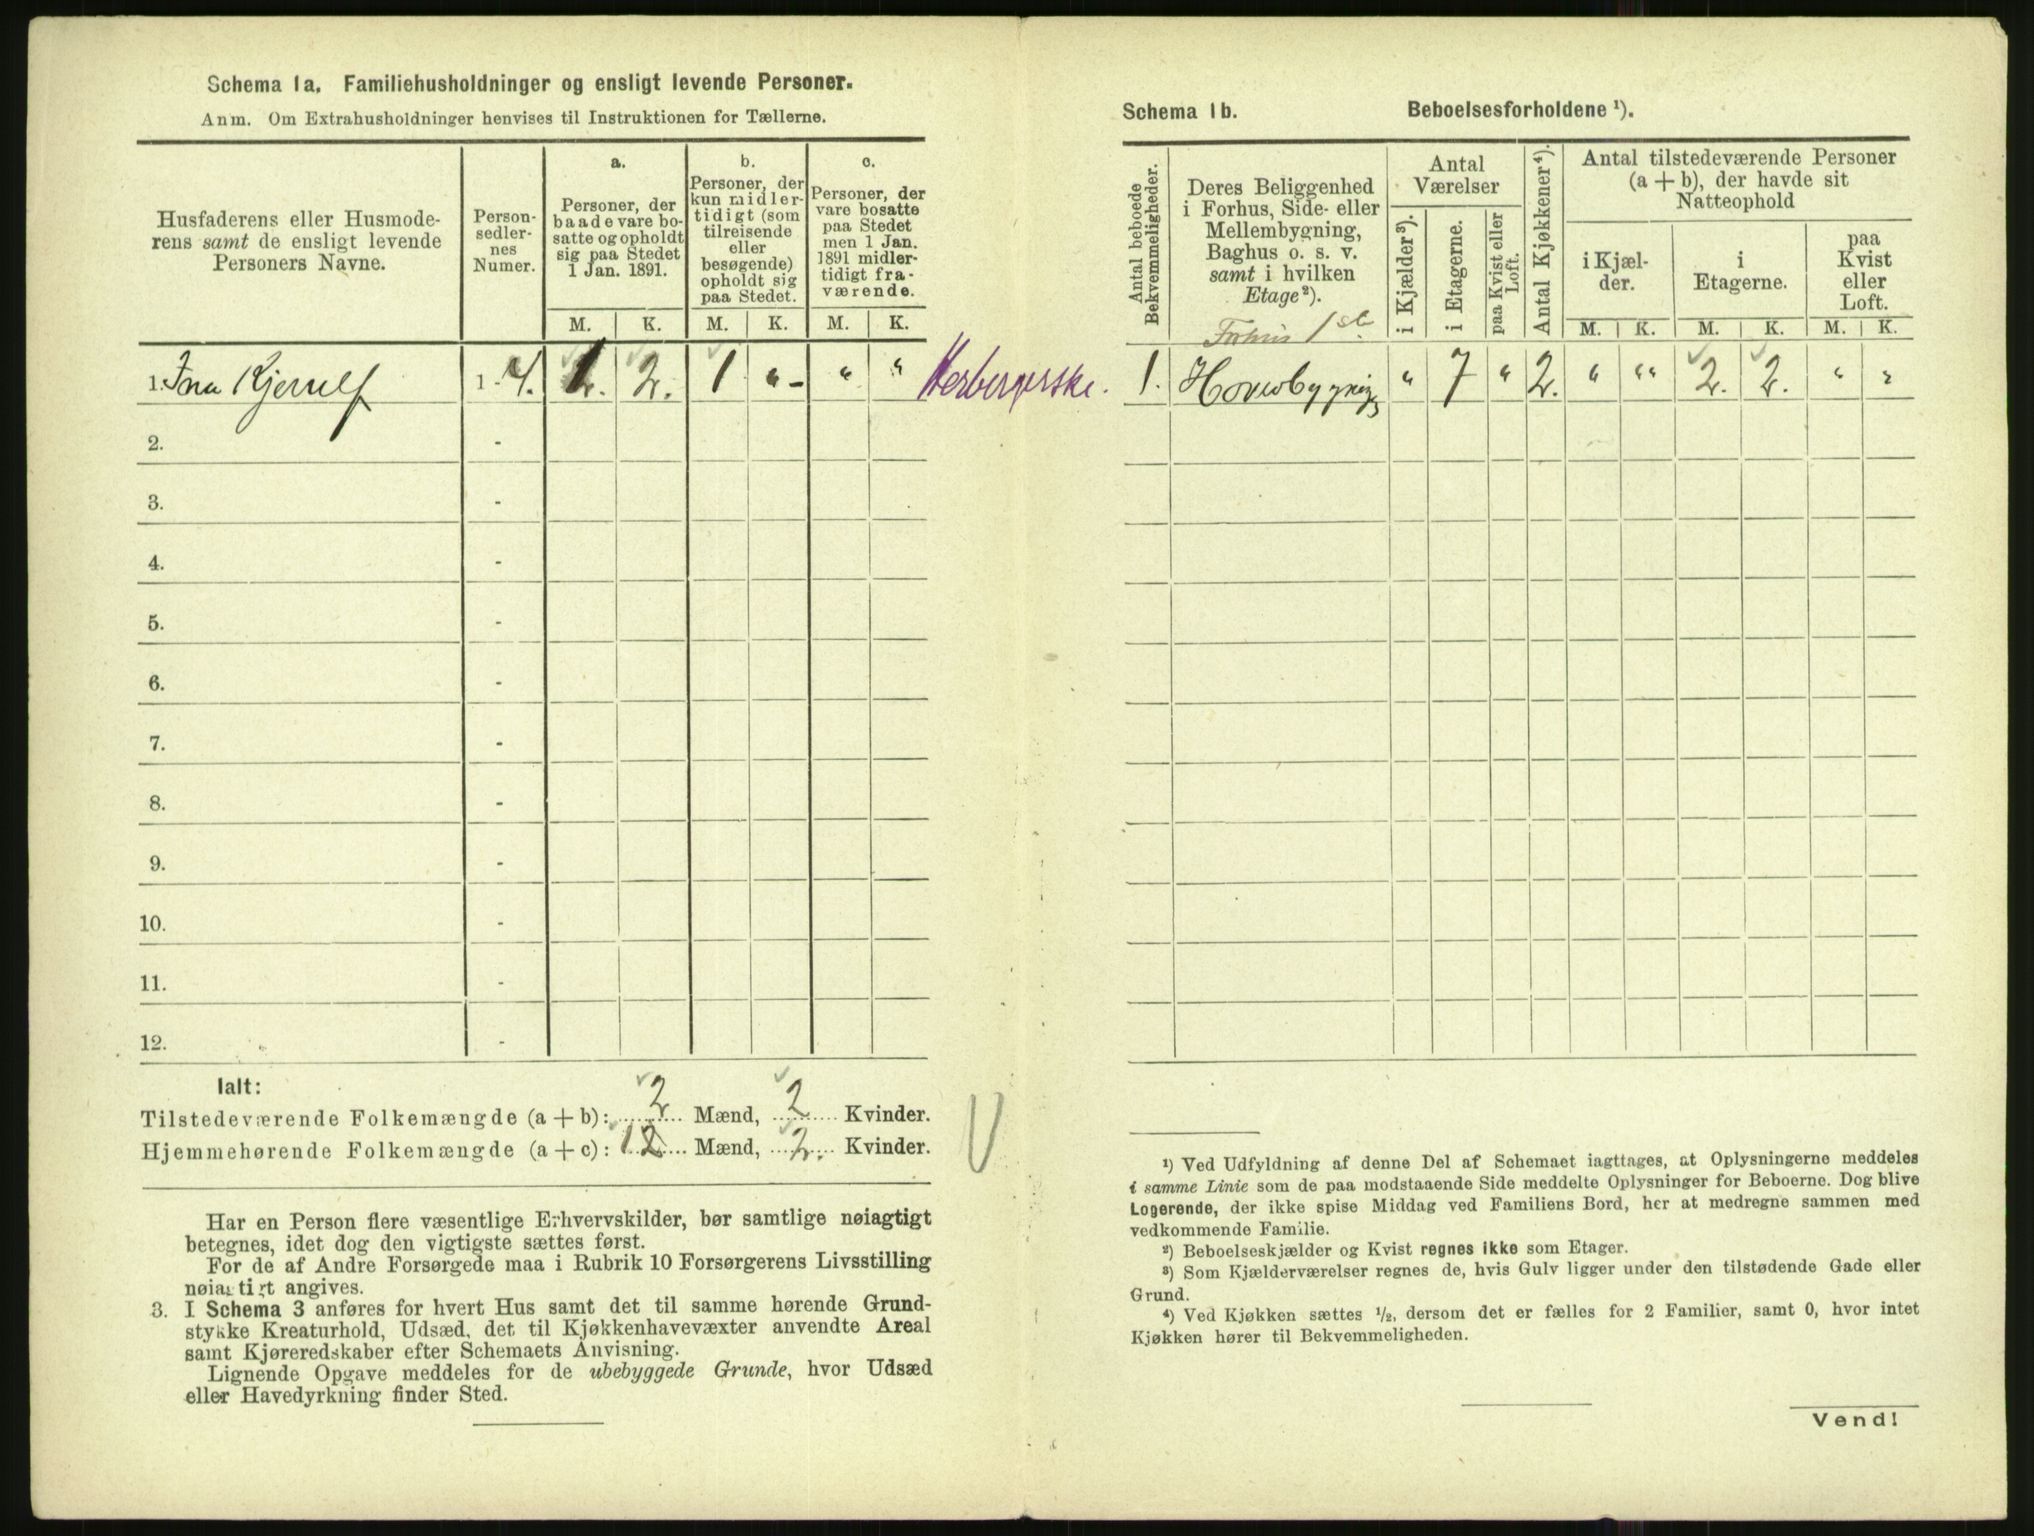 Schema 1a. Familiehusholdninger og ensligt levende Personer.
Anm. Om Extrahusholdninger henvises til Instruktionen for Tællerne.
Husfaderens eller Husmode-
rens samt de ensligt levende
Personers Navne.
Person-
sedler-
nes
Numer.
a.
Personer, der
baade vare bo-
satte og opholdt
sig paa Stedet
1 Jan. 1891.
b.
Personer, der
kun midler-
tidigt (som
tilreisende
eller
besøgende)
opholdt sig
paa Stedet.
c.
Personer, der
vare bosatte
paa Stedet
men 1 Jan.
1891 midler-
tidigt fra-
værende.
M. K. M. K. M. K.
1. Ina Kjerulf 1 - 4. 1 2. 1 „ - „ „ Herbergerske.
2. -
3. -
4. -
5. -
6. -
7. -
8. -
9. -
10. -
11. -
12. -
Ialt:
Tilstedeværende Folkemængde (a + b): 2 Mænd, 2 Kvinder.
Hjemmehørende Folkemængde (a + c): 1 2 Mænd, 2. Kvinder.
Har en Person flere væsentlige Erhvervskilder, bør samtlige nøiagtigt
betegnes, idet dog den vigtigste sættes først.
For de af Andre Forsørgede maa i Rubrik 10 Forsørgerens Livsstilling
nøiagtigt angives.
3. I Schema 3 anføres for hvert Hus samt det til samme hørende Grund-
stykke Kreaturhold, Udsæd, det til Kjøkkenhavevæxter anvendte Areal
samt Kjøreredskaber efter Schemaets Anvisning.
Lignende Opgave meddeles for de ubebyggede Grunde, hvor Udsæd
eller Havedyrkning finder Sted.
Schema 1b. Beboelsesforholdene ¹).
Antal beboede
Bekvemmeligheder.
Deres Beliggenhed
i Forhus, Side- eller
Mellembygning,
Baghus o. s. v.
samt i hvilken
Etage²).
Antal
Værelser
i Kjælder³).
i Etagerne.
paa Kvist eller
Loft.
Antal Kjøkkener⁴).
Antal tilstedeværende Personer
(a + b), der havde sit
Natteophold
i Kjæl-
der.
i
Etagerne.
paa
Kvist
eller
Loft.
M. K. M. K. M. K.
Forhus 1 st.
1. Hovedbygning „ 7 „ 2. „ „ 2. 2. „ „
¹) Ved Udfyldning af denne Del af Schemaet iagttages, at Oplysningerne meddeles
i samme Linie som de paa modstaaende Side meddelte Oplysninger for Beboerne. Dog blive
Logerende, der ikke spise Middag ved Familiens Bord, her at medregne sammen med
vedkommende Familie.
²) Beboelseskjælder og Kvist regnes ikke som Etager.
³) Som Kjælderværelser regnes de, hvis Gulv ligger under den tilstødende Gade eller
Grund.
⁴) Ved Kjøkken sættes ½, dersom det er fælles for 2 Familier, samt 0, hvor intet
Kjøkken hører til Bekvemmeligheden.
Vend!